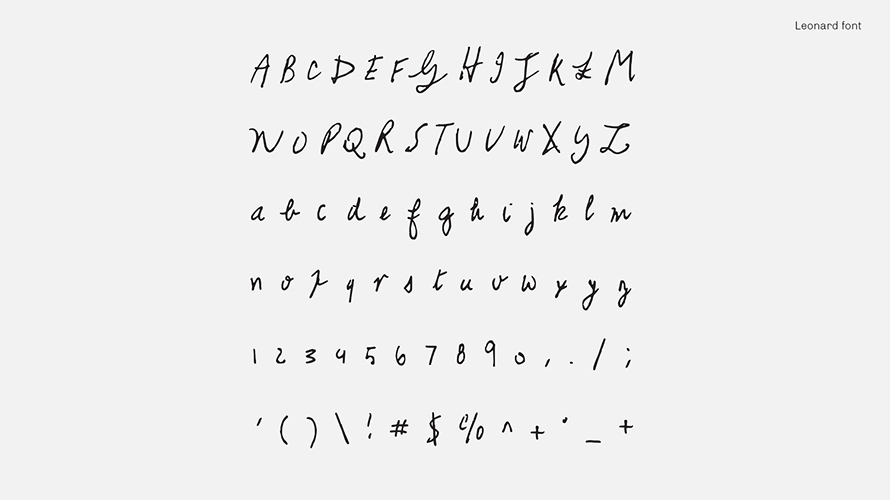 Leonard font
A B C D E F G H I J K L M
N O P Q R S T U V W X Y Z
a b c d e f g h i j k l m
n o p q r s t u v w x y z
1 2 3 4 5 6 7 8 9 0 , . / ;
' ( ) \ ! # $ % ^ + • _ +